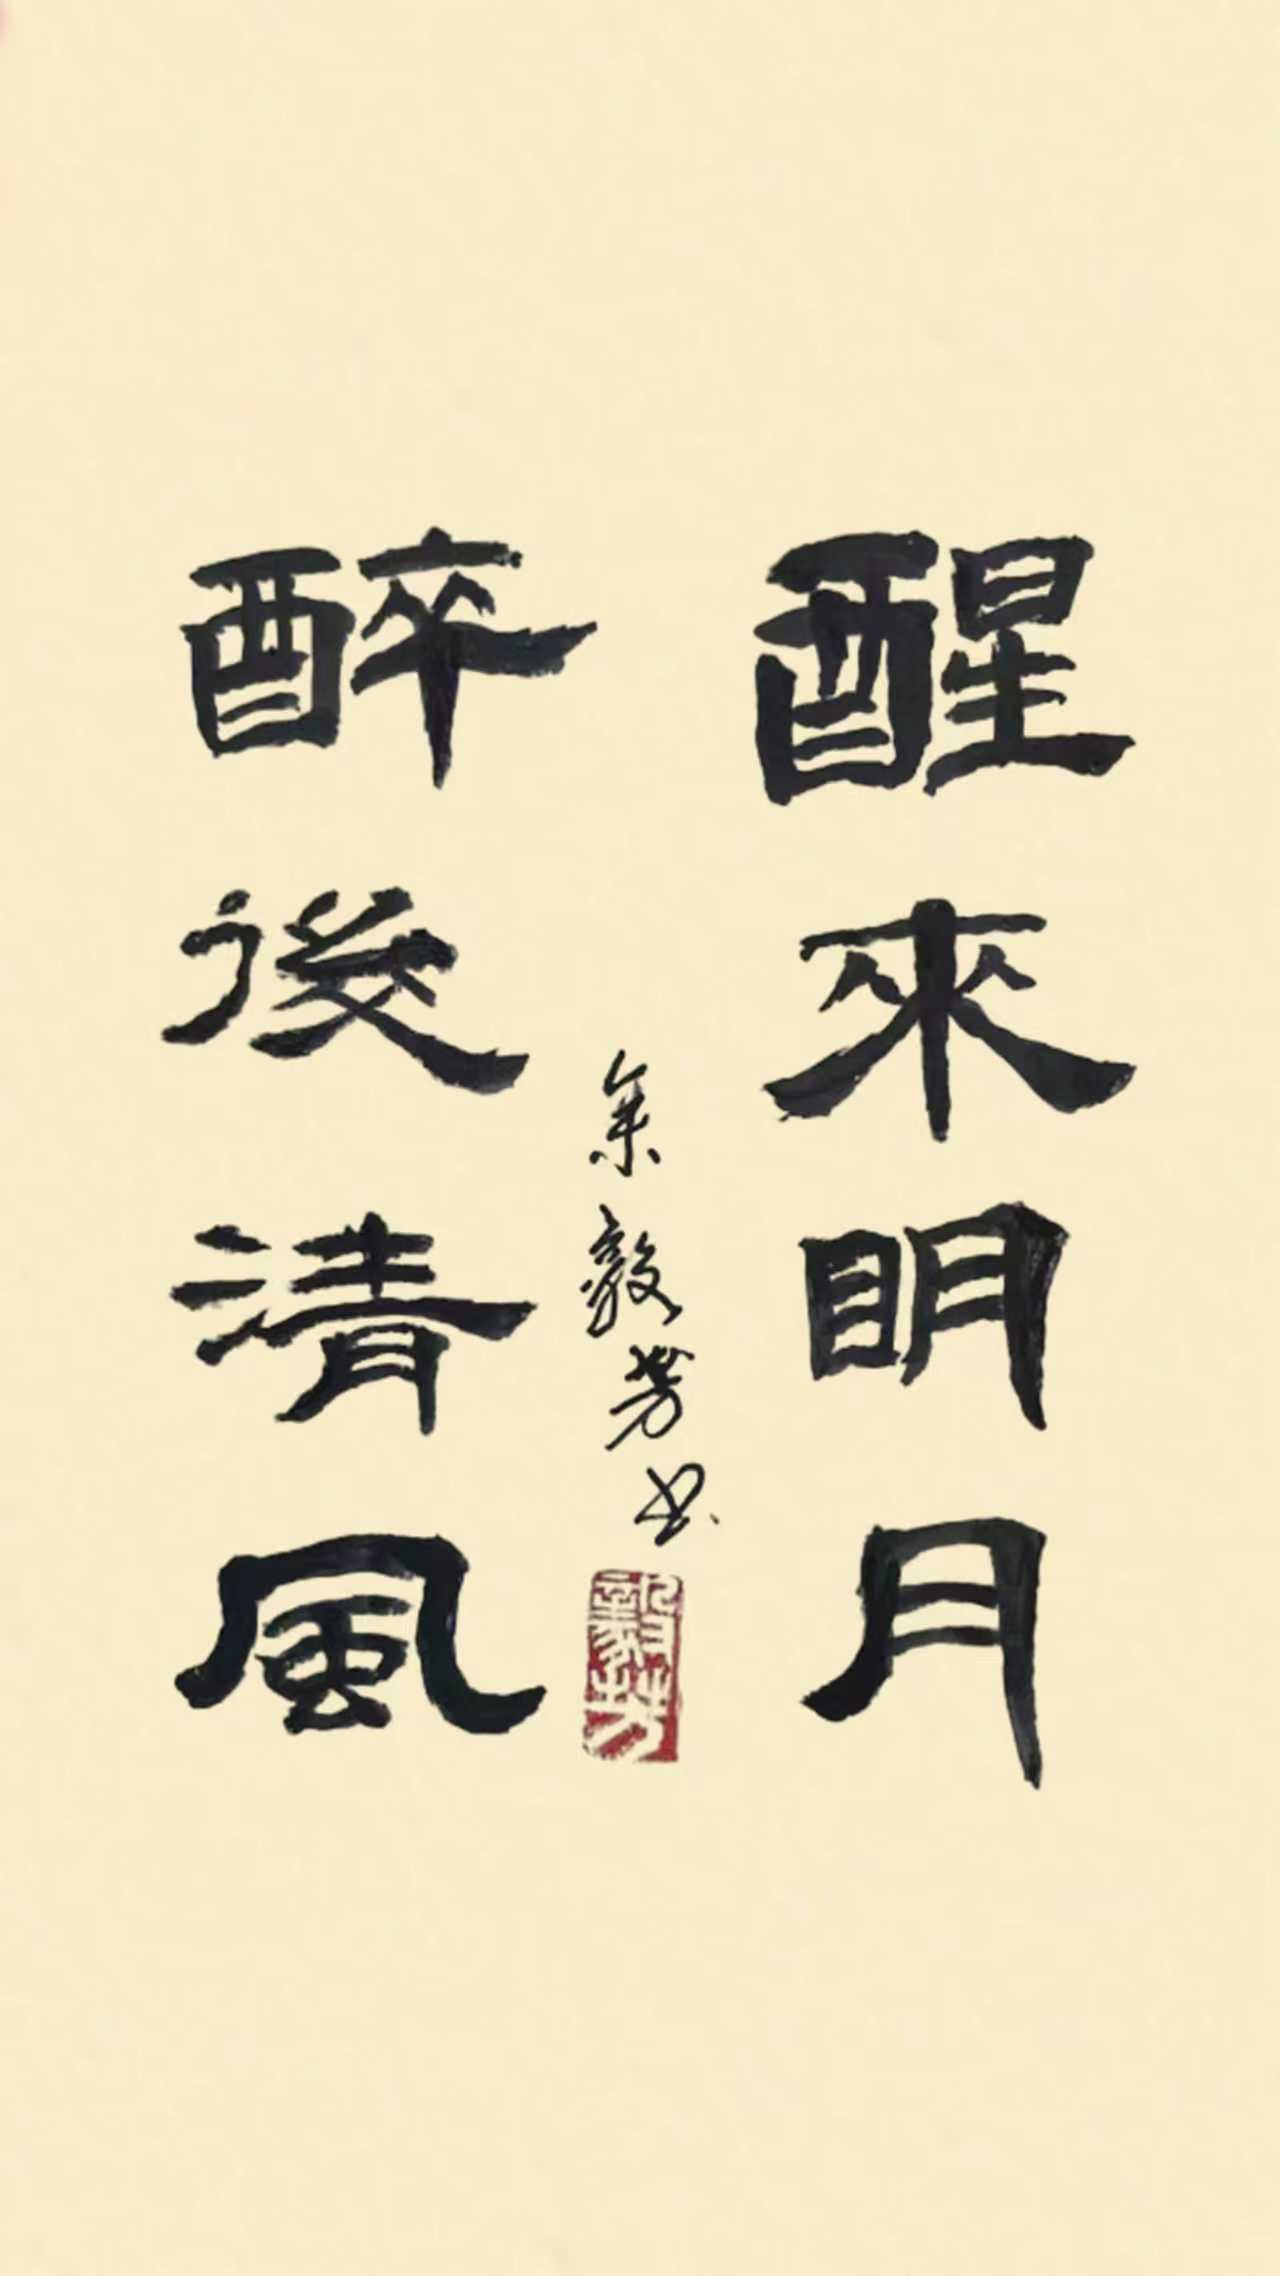 醒來明月
醉後清風
余毅芳书